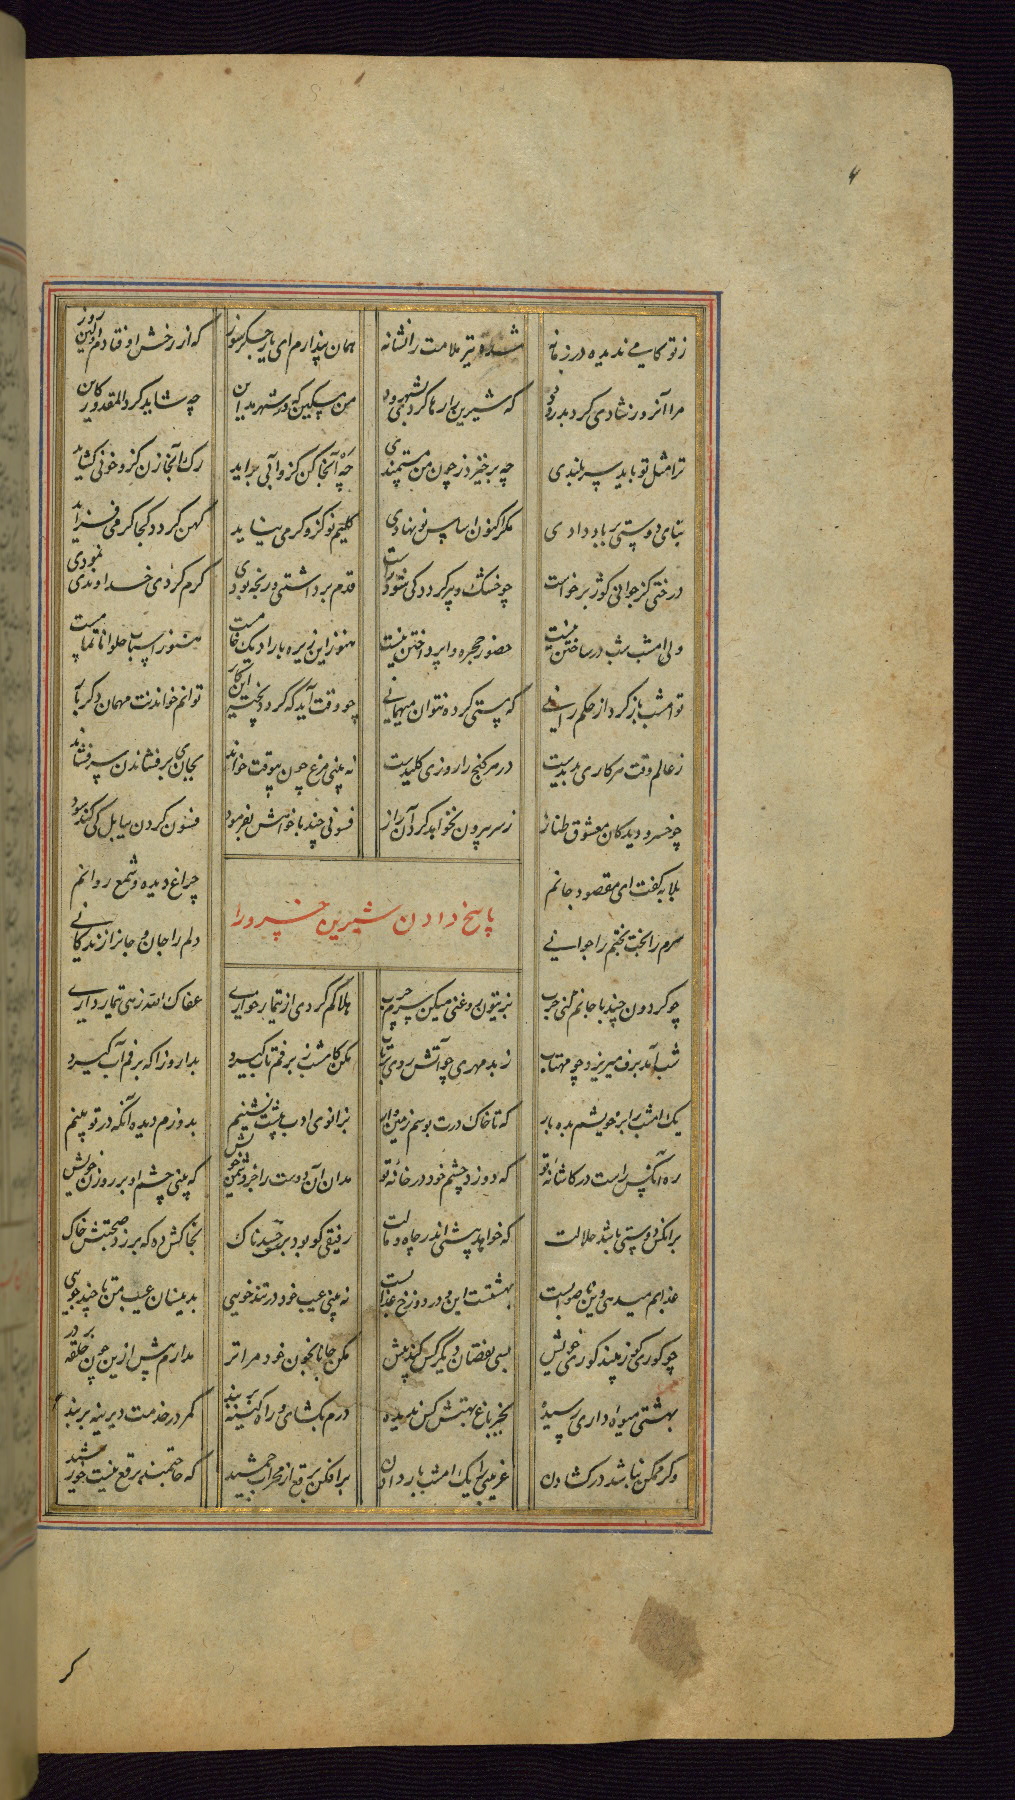 ز تو کامی ندیده در زمانه شده تیر ملامت را نشانه همان پندارم ای یار جگرسوز که از رخش اوفتادم اولین روز
مرا آنروز شادی کرد بدرود که شیرین را رها کردی من مسکین که در شهر مداین چه شاید کرد المقدور کاین
ترا مثل تو باید سربلندی چه برخیزد ز چون من مستمندی چه آنجا کن کزو آبی برآید رگ آنجا زن کزو خونی گشاید
بنای دوستی بر باد دادی مگر اکنون اساس نو نهادی گلیم نو کزو گرمی نیاید کهن گردد کجا گرمی فزاید
درختی کز جوانی کوژ برخاست چو خشک و پیر گردد کی شود راست قدم برداشتی و رنجه بودی کرم کردی خداوندی نمودی
ولی امشب شب درساختن نیست حضور حجره واپرداختن نیست هنوز این زیره‌با در دیک خامست هنوز اسباب حلوا ناتمامست
تو امشب بازگرد از حکمرانی که مستی کرده نتوان میهمانی چو وقت آید که گردد پخته این کار توانم خواندنت مهمان دگر بار
ز عالم وقت هر کاری پدیدست در هر گنج را روزی کلیدست نه بینی مرغ چون بیوقت خواند بجای پرفشاندن سر فشاند
چو خسرو دید کان معشوق طناز ز سر بیرون نخواهد کرد آن راز فسونی چند با خواهش بفرمود فسون کردن ببابل کی کند سود
بلابه گفت ای مقصود جانم چراغ دیده و شمع روانم
پاسخ دادن شیرین خسرو را
سرم را بخت بختم را جوانی دلم را جان و جانرا زندگانی
چو گردون چند با جانم کنی حرب بزیتون روغنی میکن سرم چرب هلاکم کردی از تیمارخواری عفاک الله زهی تیمارداری
شب آمد برف میریزد چو مهتاب ز بدمهری چو آتش روی برتاب مکن کامشب ز برفم تاب گیرد بدا روزا که برفم آب گیرد
یک امشب بر در خویشم بده بار که تا خاک درت بوسم زمین‌وار بزانوی ادب پیشت نشینم بدوزم دیده آنگه در تو بینم
ره آنکس راست در کاشانه تو که دوزد چشم خود در خانه تو مدان آن دوست را جز دشمن خویش که بینی چشم او بر روزن خویش
برانکس دوستی باشد حلالت که خواهد بیشی اندر جاه و مالت رفیقی کو بود بر تو حسدناک بخاکش ده که برزد صحبتش خاک
عذابم میدهی وین ناصوابست بهشتست این و در دوزخ عذابست نه بینی عیب خود در تندخویی بدینسان عیب من تا چند جویی
چو کوری کو نه بیند کوری خویش بصد نقصان دیگر کس کند پیش مکن جانا بخون خود مرا تر مدارم بیش ازین چون حلقه بر در
بهشتی میوه‌ای داری رسیده بجز باغ بهشتش کس ندیده درم بگشای و راه کینه بربند کمر در خدمت دیرینه بربند
وگر ممکن نباشد در گشادن غریبی را یک امشب بار دادن برافکن برقع از محراب جمشید که حاجتمند برقع نیست خورشید
کر